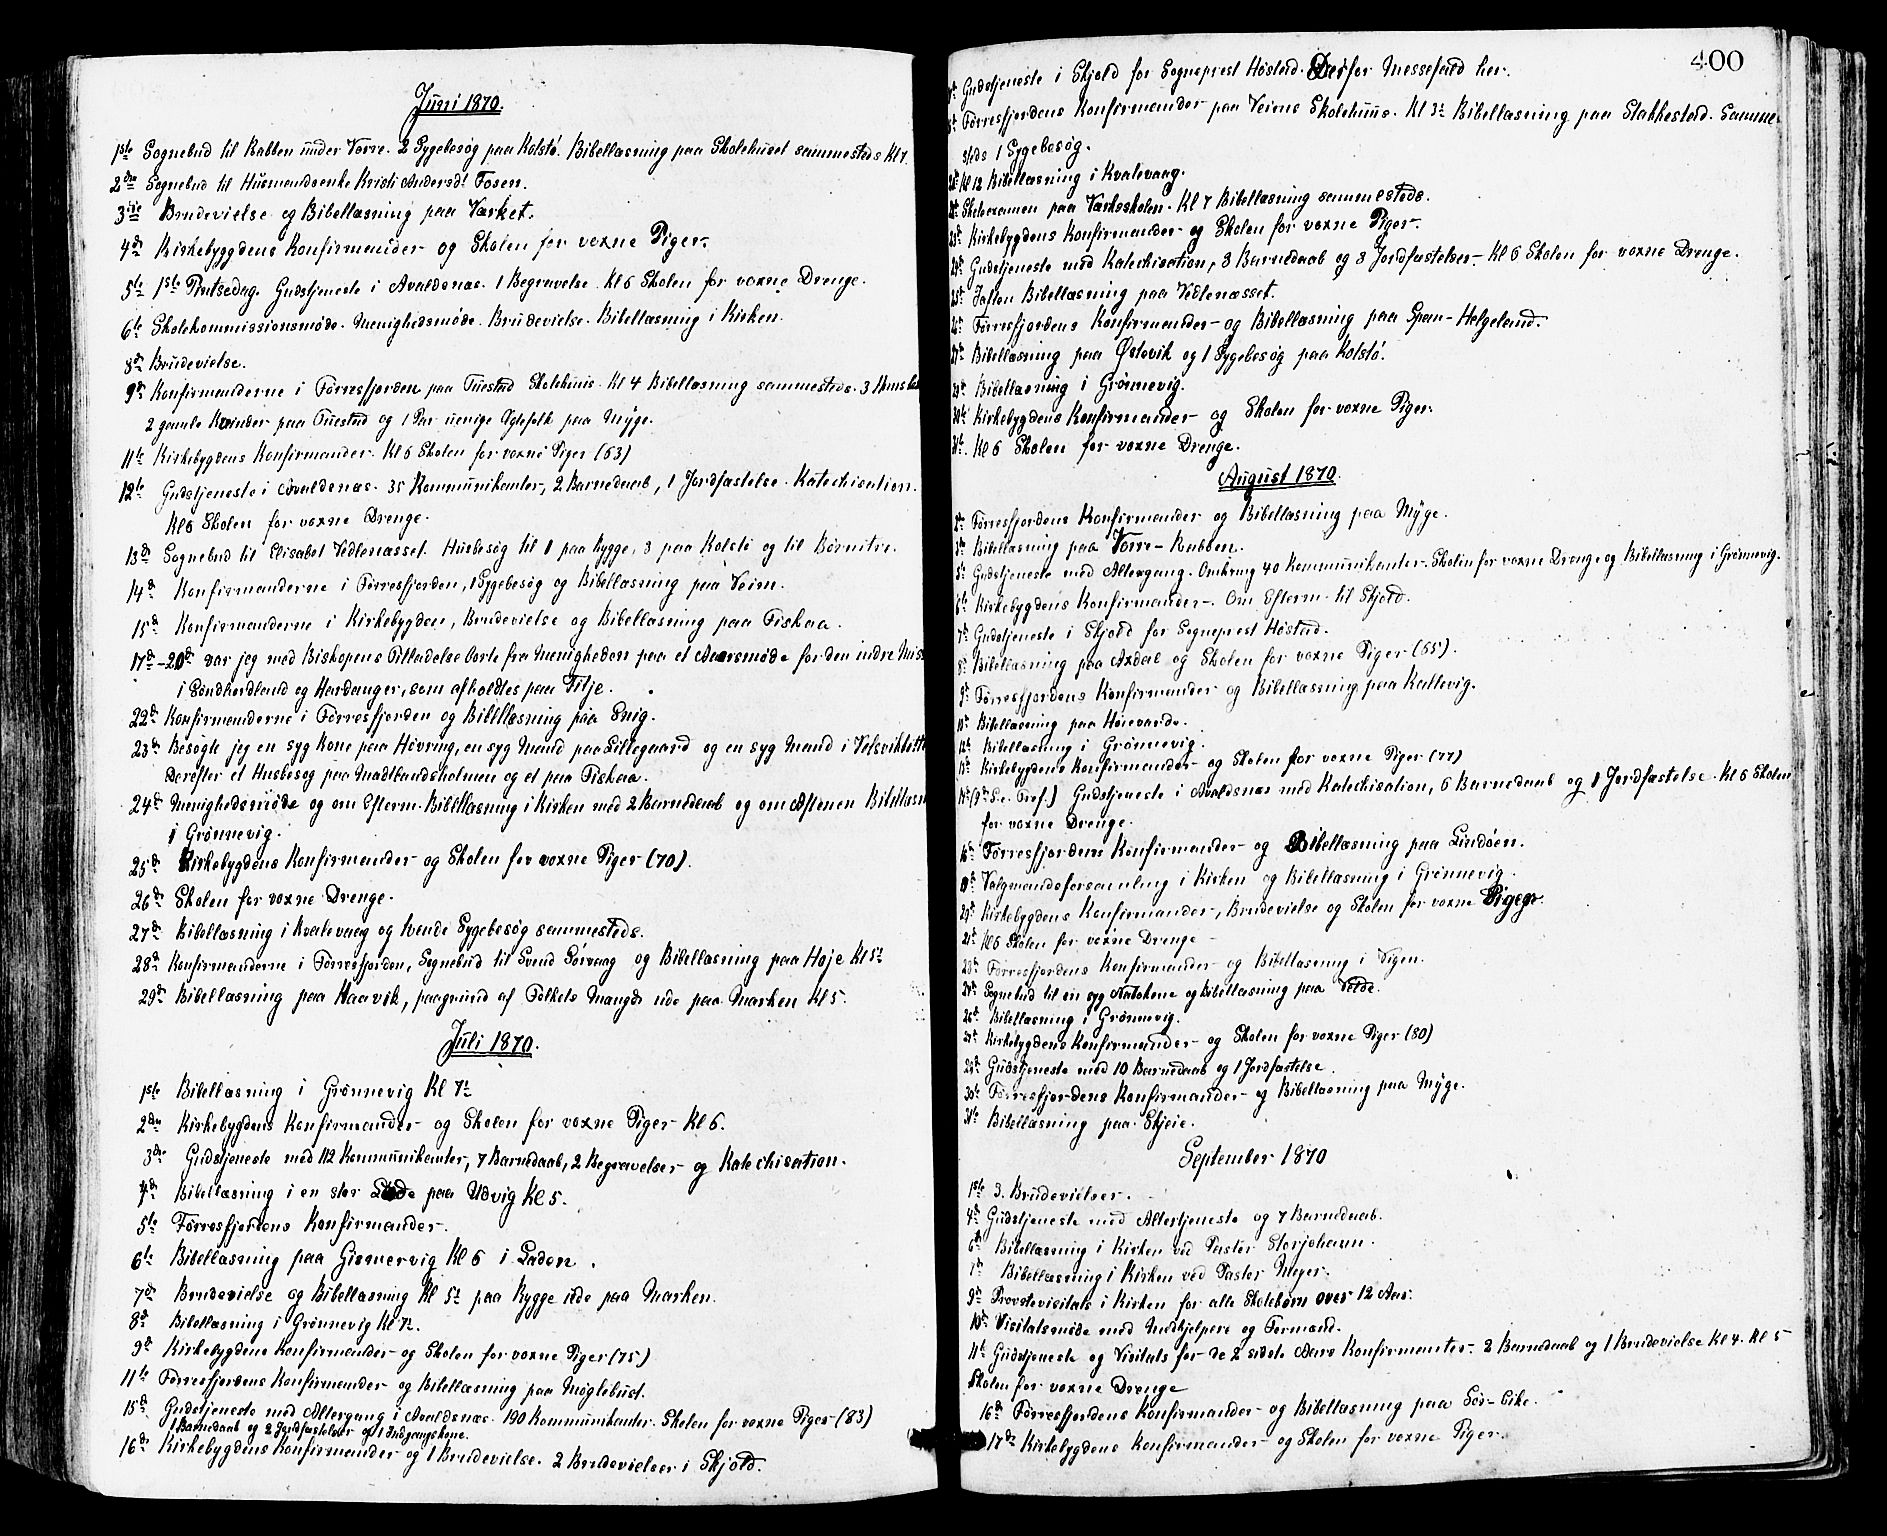 Juni 1870.
1ste Sognebud til Rabben under Vorre. 2 Sygebesøg paa Kolstø. Bibellæsning paa Skolehuset sammesteds Kl 7.
2den Sognebud til Husmandsenke Kristi Andersdr Fosen.
3die Brudevielse og Bibellæsning paa Værket.
4de Kirkebygdens Konfirmander og Skolen for voxne Piger.
5te 1ste Pintsedag. Gudstjeneste i Avaldsnæs. 1 Begravelse. Kl 6 Skolen for voxne Drenge.
6te Skolekommissionsmøde. Menighedsmøde. Brudevielse. Bibellæsning i Kirken.
8de Brudevielse.
9de Konfirmanderne i Førresfjorden paa Tuestad Skolehuus. Kl 4 Bibellæsning sammesteds. 3
2 gamle Kvinder paa Tuestad og 1 Par uenige Ægtefolk paa Myge.
11te Kirkebygdens Konfirmander. Kl 6 Skolen for voxne Piger (63)
12te Gudstjeneste i Avaldsnæs. 35 Kommunikanter, 2 Barnedaab, 1 Jordfæstelse. Katechisation.
Kl 6 Skolen for voxne Drenge.
13de Sognebud til Elisabet Vedlenæsset. Husbesøg til 1 paa Rygge, 3 paa Kolstø og til
14de Konfirmanderne i Førresfjorden, 1 Sygebesøg og Bibellæsning paa Veim.
15de Konfirmanderne i Kirkebygden, Brudevielse og Bibellæsning paa Fiskaa.
17de-20de var jeg med Biskopens Tilladelse borte fra Menigheden paa et Aarsmøde for den indre Miss
i Søndhordland og Hardanger, som afholdtes paa Tilje.
22de Konfirmanderne i Førresfjorden og Bibellæsning paa Snig.
23de Besøgte jeg en syg Kone paa Høvring, en syg Mand paa Lillegaard og en syg Mand i
derefter et Husbesøg paa Madlandsholmen og et paa Fiskaa.
24de Menighedsmøde og om Efterm. Bibellæsning i Kirken med 2 Barnedaab og om Aftenen Bibellæsn
i Grønnevig.
25de Kirkebygdens Konfirmander og Skolen for voxne Piger (70).
26de Skolen for voxne Drenge.
27de Bibellæsning i Kvalevaag og tvende Sygebesøg sammesteds.
28de Konfirmanderne i Førresfjorden, Sognebud til Svend Sørvaag og Bibellæsning paa Høje Kl 5½
29de Bibellæsning paa Haavik, paagrund af Folkets Mængde ude paa Marken Kl 5.
Juli 1870.
1ste Bibellæsning i Grønnevig Kl 7½
2den Kirkebygdens Konfirmander og Skolen for voxne Piger Kl 6.
3die Gudstjeneste med 112 Kommunikanter, 7 Barnedaab, 2 Begravelser og Katechisation.
4de Bibellæsning i en stor Lade paa Udvig Kl 5.
5te Førresfjordens Konfirmander.
6te Bibellæsning paa Ginnervig Kl 6 i Laden.
7de Brudevielse og Bibellæsning Kl 5½ paa Rygge ude paa Marken.
8de Bibellæsning i Grønnevig Kl 7½.
9de Kirkebygdens Konfirmander og Skolen for voxne Piger (75)
11te Førresfjordens Konfirmander og Bibellæsning paa Møglebust.
15de Gudstjeneste med Altergang i Avaldsnæs. 190 Kommunikanter. Skolen for voxne Piger (83)
1 Barnedaab og 2 Jordfæstelser og 1 Indgangskone.
16de Kirkebygdens Konfirmander og 1 Brudevielse. 2 Brudevielser i Skjold.
400
Gudstjeneste i Skjold for Sogneprest Høstad. Derfor Messefald her.
Førresfjordens Konfirmander paa Veims Skolehuus. Kl 3½ Bibellæsning paa Stakkestad. Samme-
steds 1 Sygebesøg.
Kl 12 Bibellæsning i Kvalevaag.
Skoleexamen paa Værksskolen. Kl 7 Bibellæsning sammesteds.
23de Kirkebygdens Konfirmander og Skolen for voxne Piger.
24de Gudstjeneste med Katechisation, 3 Barnedaab og 3 Jordfæstelser. Kl 6 Skolen for voxne Drenge.
25de Joften Bibellæsning paa Vedlenæsset.
26de Førresfjordens Konfirmander og Bibellæsning paa Span-Helgeland.
27de Bibellæsning paa Østevik og 1 Sygebesøg paa Kolstø.
29de Bibellæsning i Grønnevig.
30te Kirkebygdens Konfirmander og Skolen for voxne Piger.
31te Kl 6 Skolen for voxne Drenge.
August 1870.
2de Førresfjordens Konfirmander og Bibellæsning paa Myge.
3de Bibellæsning paa Vorre-Rabben.
5te Gudstjeneste med Altergang. Omkring 40 Kommunikanter. Skolen for voxne Drenge og Bibellæsning i Grønnevig.
6te Kirkebygdens Konfirmander. Om Efterm. til Skjold.
7de Gudstjeneste i Skjold for Sogneprest Høstad.
8de Bibellæsning paa Axdal og Skolen for voxne Piger (65).
9de Førresfjordens Konfirmander og Bibellæsning paa Kallevig.
11te Bibellæsning paa Hørevarde.
12te Bibellæsning i Grønnevig.
13de Kirkebygdens Konfirmander og Skolen for voxne Piger (77)
14de (9de S. e. Tref.) Gudstjeneste i Avaldsnæs med Katechisation, 6 Barnedaab og 1 Jordfæstelse. Kl 6 Skolen
for voxne Drenge.
16de Førresfjordens Konfirmander og Bibellæsning paa Lindøen.
19de Valgmandsforsamling i Kirken og Bibellæsning i Grønnevig.
20de Kirkebygdens Konfirmander, Brudevielse og Skolen for voxne Piger.
21de Kl 6 Skolen for voxne Drenge
23de Førresfjordens Konfirmander og Bibellæsning i Vigen.
24de Sognebud til en syg og Bibellæsning paa Velde.
26de Bibellæsning i Grønnevig.
27de Kirkebygdens Konfirmander og Skolen for voxne Piger (80)
28de Gudstjeneste med 10 Barnedaab og 1 Jordfæstelse.
30te Førresfjordens Konfirmander og Bibellæsning paa Myge.
31te Bibellæsning paa Skjeie.
September 1870
1ste 3 Brudevielser.
4de Gudstjeneste med Altertjeneste og 7 Barnedaab.
6te Bibellæsning i Kirken ved Pastor Storjohann.
7de Bibellæsning i Kirken ved Pastor Meyer.
9de Provstevisitats i Kirken for alle Skolebørn over 12 Aar.
10de Visitatsmøde med Medhjelpere og Formænd.
11te Gudstjeneste og Visitats for de 2 sidste Aars Konfirmanter. 2 Barnedaab og 1 Brudevielse Kl 4. Kl 5
Skolen for voxne Drenge
16de Førresfjordens Konfirmander og Bibellæsning paa Sør-Eike.
17de Kirkebygdens Konfirmander og Skolen for voxne Piger.